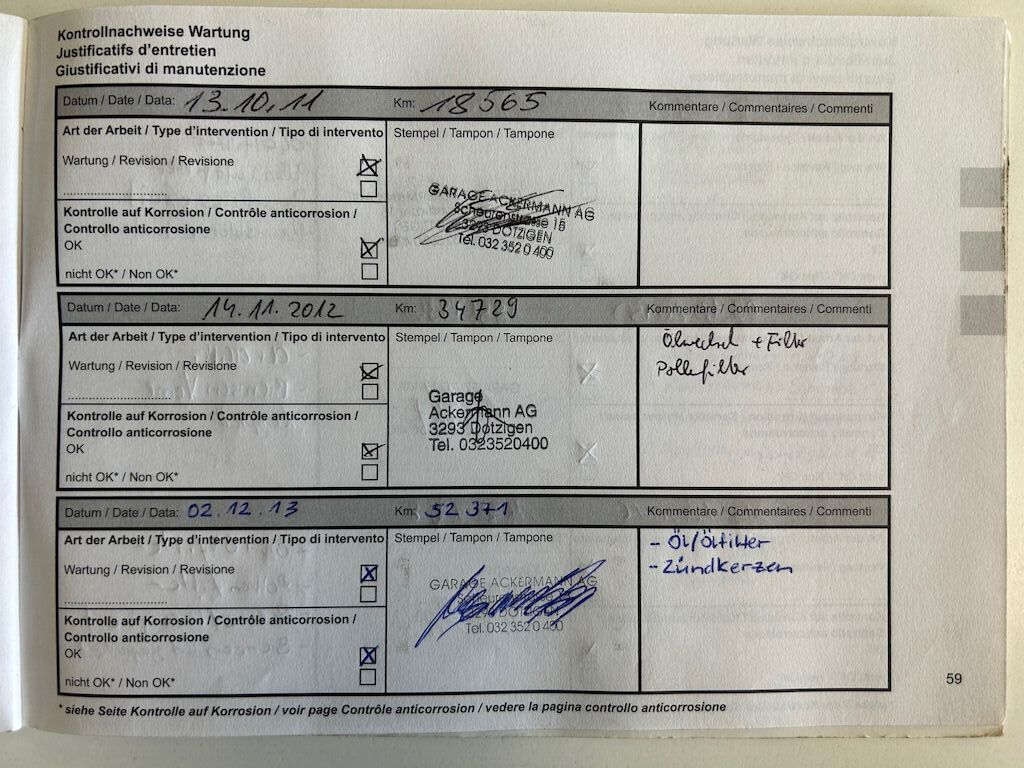 Kontrollnachweise Wartung
Justificatifs d'entretien
Giustificativi di manutenzione
Datum / Date / Data: 13.10.11 Km: 18565 Kommentare / Commentaires / Commenti
Art der Arbeit / Type d'intervention / Tipo di intervento Stempel / Tampon / Tampone
Wartung / Revision / Revisione
Kontrolle auf Korrosion / Contrôle anticorrosion /
Controllo anticorrosione
OK
nicht OK* / Non OK*
GARAGE ACKERMANN AG
Scheurenstrasse 15
3293 DOTZIGEN
Tel. 032 352 0 400
Datum / Date / Data: 14.11.2012 Km: 34729 Kommentare / Commentaires / Commenti
Art der Arbeit / Type d'intervention / Tipo di intervento Stempel / Tampon / Tampone
Wartung / Revision / Revisione
Kontrolle auf Korrosion / Contrôle anticorrosion /
Controllo anticorrosione
OK
nicht OK* / Non OK*
Garage
Ackermann AG
3293 Dotzigen
Tel. 0323520400
Ölwechsel + Filter
Pollenfilter
Datum / Date / Data: 02.12.13 Km: 52371 Kommentare / Commentaires / Commenti
Art der Arbeit / Type d'intervention / Tipo di intervento Stempel / Tampon / Tampone
Wartung / Revision / Revisione
Kontrolle auf Korrosion / Contrôle anticorrosion /
Controllo anticorrosione
OK
nicht OK* / Non OK*
GARAGE ACKERMANN AG
DOTZIGEN
Tel. 032 352 0 400
- Öl/Ölfilter
- Zündkerzen
59
* siehe Seite Kontrolle auf Korrosion / voir page Contrôle anticorrosion / vedere la pagina controllo anticorrosione